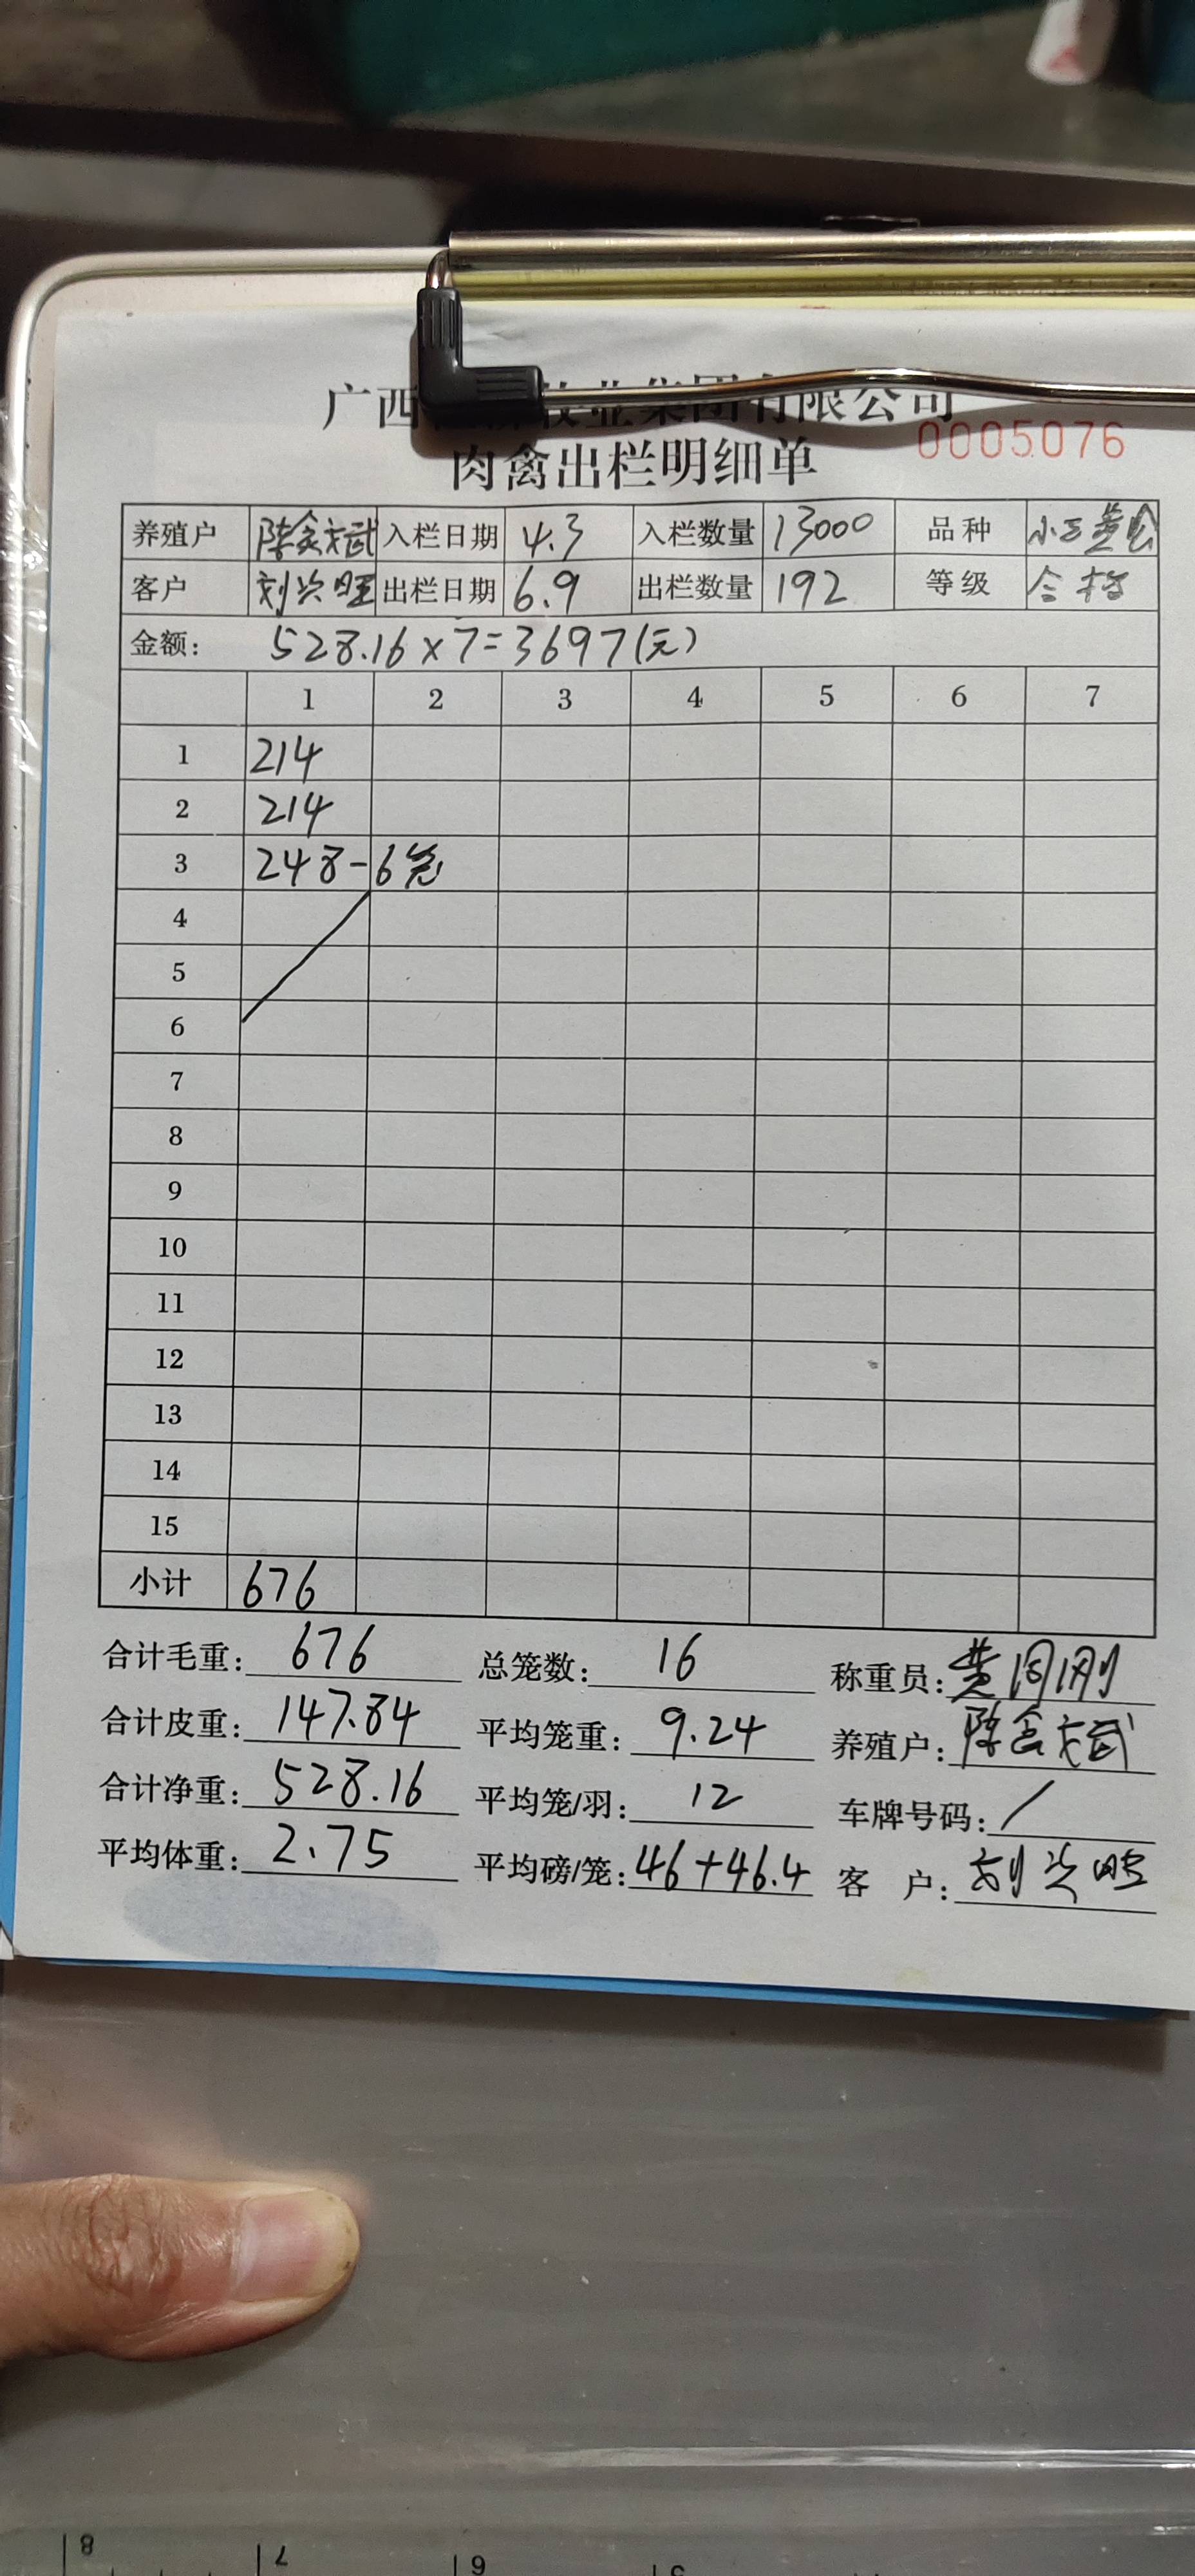 广西 牧业集团有限公司
0005076
肉禽出栏明细单
养殖户 陈 武 入栏日期 4.3 入栏数量 13000 品种 小三黄
客户 刘兴旺 出栏日期 6.9 出栏数量 192 等级 合格
金额： 528.16×7=3697(元)
1 2 3 4 5 6 7
1 214
2 214
3 248-6笼
4
5
6
7
8
9
10
11
12
13
14
15
小计 676
合计毛重: 676 总笼数: 16 称重员: 黄 刚
合计皮重: 147.84 平均笼重: 9.24 养殖户: 陈 武
合计净重: 528.16 平均笼/羽: 12 车牌号码: /
平均体重: 2.75 平均磅/笼: 46+46.4 客 户: 刘兴旺
8 7 6 5